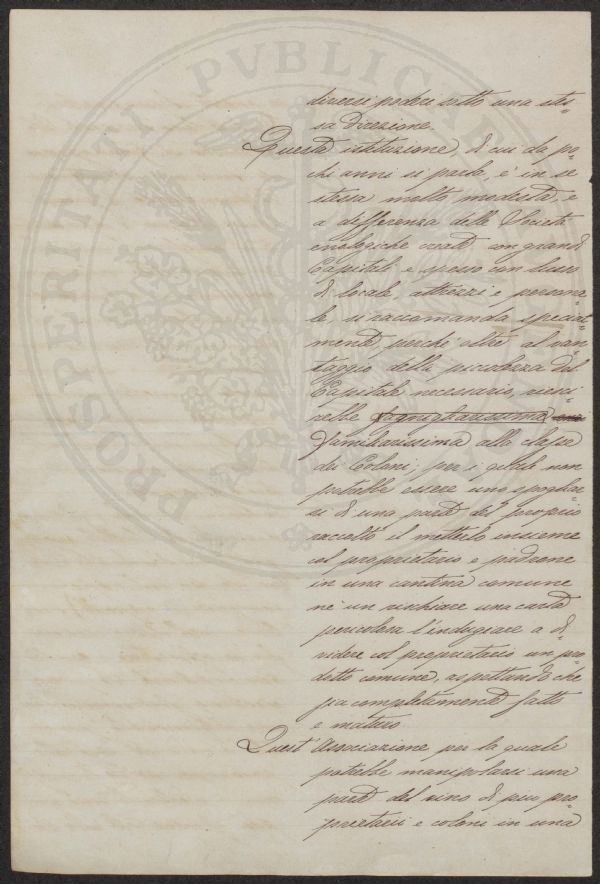 PROSPERITATI PVBLICAE
diversi poderi sotto una stes=
sa direzione.
Questa istituzione, di cui da po=
chi anni si parla, è in se
stessa molto modesta, e
a differenza delle Società
enologiche create con grandi
Capitali e spesso con lusso
di locale, attrezzi e persona=
le, si raccomanda special=
mente, perchè oltre al van=
taggio della piccolezza del
Capitale necessario, riesci=
rebbe
familiarissima alla classe
dei Coloni; per i quali non
potrebbe essere uno spogliar=
si di una parte del proprio
raccolto il metterlo insieme
col proprietario e padrone
in una cantina comune
nè un rischiare una carta
pericolosa l'indugiare a di=
videre col proprietario un pro=
dotto comune, aspettando che
sia completamente fatto
e maturo.
Quest' Associazione per la quale
potrebbe manipolarsi una
parte del vino di più pro=
prietarii e coloni in una